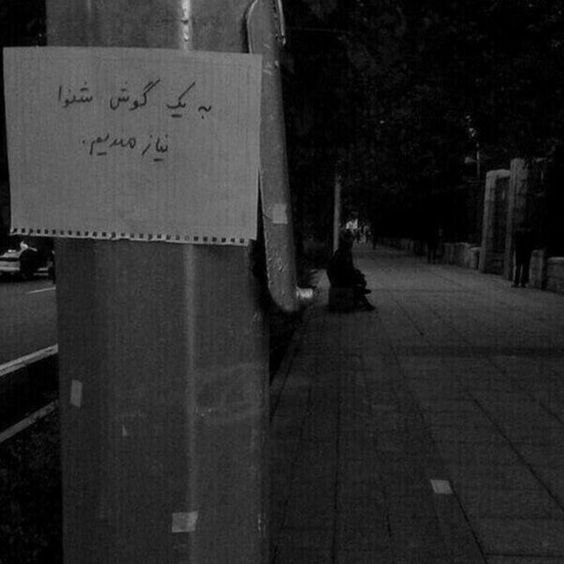 به یک گوش شنوا
نیازمندیم.